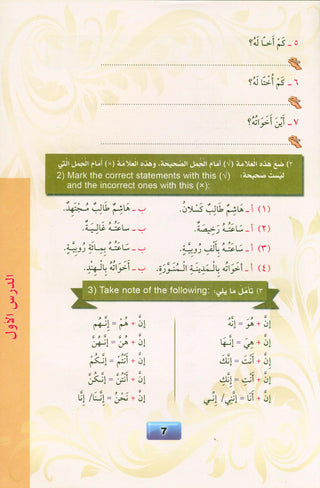 ٥ ـ كَمْ أَخـًا لَهُ؟
٦ ـ كَمْ أُخْتًا لَهُ؟
٧ ـ أَيْنَ أَخَوَاتُهُ؟
٢) ضع هذه العلامة (√) أمام الجمل الصحيحة، وهذه العلامة (×) أمام الجمل التي
ليست صحيحة:
2) Mark the correct statements with this (√)
and the incorrect ones with this (×):
(١) أ ـ هَاشِمٌ طَالِبٌ كَسْلَانُ. ب ـ هَاشِمٌ طَالِبٌ مُجْتَهِدٌ.
(٢) أ ـ سَاعَتُهُ رَخِيصَةٌ. ب ـ سَاعَتُهُ غَالِيَةٌ.
(٣) أ ـ سَاعَتُهُ بِأَلْفِ رُوبِيَّةٍ. ب ـ سَاعَتُهُ بِمِائَةِ رُوبِيَّةٍ.
(٤) أ ـ أَخَوَاتُهُ بِالْمَدِينَةِ الْمُنَوَّرَةِ. ب ـ أَخَوَاتُهُ بِالْهِنْدِ.
٣) تأمل ما يلي: 3) Take note of the following:
إِنَّ + هُوَ = إِنَّهُ إِنَّ + هُمْ = إِنَّـهُم
إِنَّ + هِيَ = إِنَّـهَا إِنَّ + هُنَّ = إِنَّـهُنَّ
إِنَّ + أَنْتَ = إِنَّكَ إِنَّ + أَنْتُمْ = إِنَّكُمْ
إِنَّ + أَنْتِ = إِنَّكِ إِنَّ + أَنْتُنَّ = إِنَّكُنَّ
إِنَّ + أَنَا = إِنَّنِي/ إِنِّي إِنَّ + نَحْنُ = إِنَّنَا/ إِنَّا
الدرس الأول
7